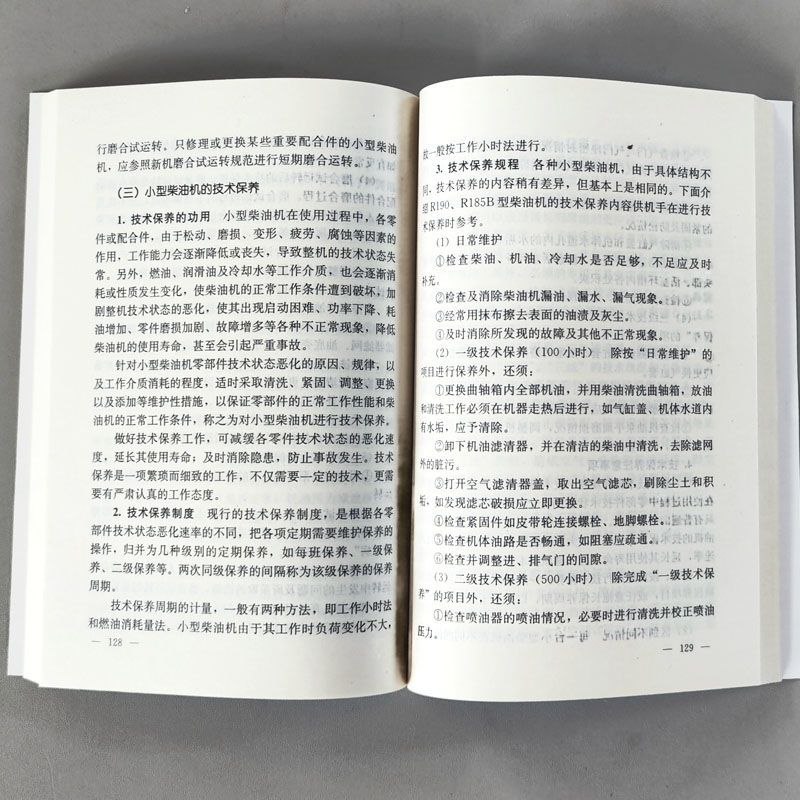 行磨合试运转。只修理或更换某些重要配合件的小型柴油
机，应参照新机磨合试运转规范进行短期磨合运转。
（三）小型柴油机的技术保养
1. 技术保养的功用 小型柴油机在使用过程中，各零
件或配合件，由于松动、磨损、变形、疲劳、腐蚀等因素的
作用，工作能力会逐渐降低或丧失，导致整机的技术状态失
常。另外，燃油、润滑油及冷却水等工作介质，也会逐渐消
耗或性质发生变化，使柴油机的正常工作条件遭到破坏，加
剧整机技术状态的恶化，使其出现启动困难、功率下降、耗
油增加、零件磨损加剧、故障增多等各种不正常现象，降低
柴油机的使用寿命，甚至会引起严重事故。
针对小型柴油机零部件技术状态恶化的原因、规律，以
及工作介质消耗的程度，适时采取清洗、紧固、调整、更换
以及添加等维护性措施，以保证零部件的正常工作性能和柴
油机的正常工作条件，称之为对小型柴油机进行技术保养。
做好技术保养工作，可减缓各零件技术状态的恶化速
度，延长其使用寿命；及时消除隐患，防止事故发生。技术
保养是一项繁琐而细致的工作，不仅需要一定的技术，更需
要有严肃认真的工作态度。
2. 技术保养制度 现行的技术保养制度，是根据各零
部件技术状态恶化速率的不同，把各项定期需要维护保养的
操作，归并为几种级别的定期保养，如每班保养、一级保
养、二级保养等。两次同级保养的间隔称为该级保养的保养
周期。
技术保养周期的计量，一般有两种方法，即工作小时法
和燃油消耗量法。小型柴油机由于其工作时负荷变化不大，
— 128 —
故一般按工作小时法进行。
3. 技术保养规程 各种小型柴油机，由于具体结构不
同，技术保养的内容稍有差异，但基本上是相同的。下面介
绍R190、R185B 型柴油机的技术保养内容供机手在进行技
术保养时参考。
（1）日常维护
①检查柴油、机油、冷却水是否足够，不足应及时
补充。
②检查及消除柴油机漏油、漏水、漏气现象。
③经常用抹布擦去表面的油渍及灰尘。
④及时消除所发现的故障及其他不正常现象。
（2）一级技术保养（100 小时） 除按“日常维护”的
项目进行保养外，还须：
①更换曲轴箱内全部机油，并用柴油清洗曲轴箱，放油
和清洗工作必须在机器走热后进行，如气缸盖、机体水道内
有水垢，应予清除。
②卸下机油滤清器，并在清洁的柴油中清洗，去除滤网
外的脏污。
③打开空气滤清器盖，取出空气滤芯，刷除尘土和积
垢，如发现滤芯破损应立即更换。
④检查紧固件如皮带轮连接螺栓、地脚螺栓。
⑤检查机体油路是否畅通，如阻塞应疏通。
⑥检查并调整进、排气门的间隙。
（3）二级技术保养（500 小时） 除完成“一级技术保
养”的项目外，还须：
①检查喷油器的喷油情况，必要时进行清洗并校正喷油
压力。
— 129 —